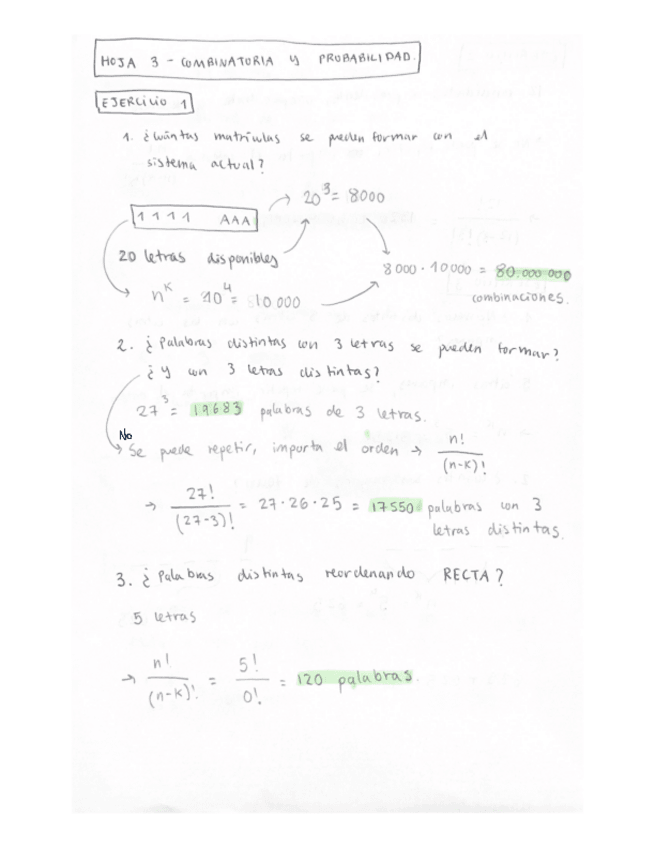 HOJA 3 - COMBINATORIA Y PROBABILIDAD.
EJERCICIO 1
1. ¿Cuántas matrículas se pueden formar con el
sistema actual?
1 1 1 1 AAA → 20³ = 8000
20 letras disponibles
8000 · 10000 = 80.000.000
combinaciones.
n^k = 10⁴ = 10000
2. ¿Palabras distintas con 3 letras se pueden formar?
¿Y con 3 letras distintas?
27³ = 19683 palabras de 3 letras.
No
Se puede repetir, importa el orden → n!/(n-k)!
→ 27!/(27-3)! = 27·26·25 = 17550 palabras con 3
letras distintas.
3. ¿Palabras distintas reordenando RECTA?
5 letras
→ n!/(n-k)! = 5!/0! = 120 palabras.